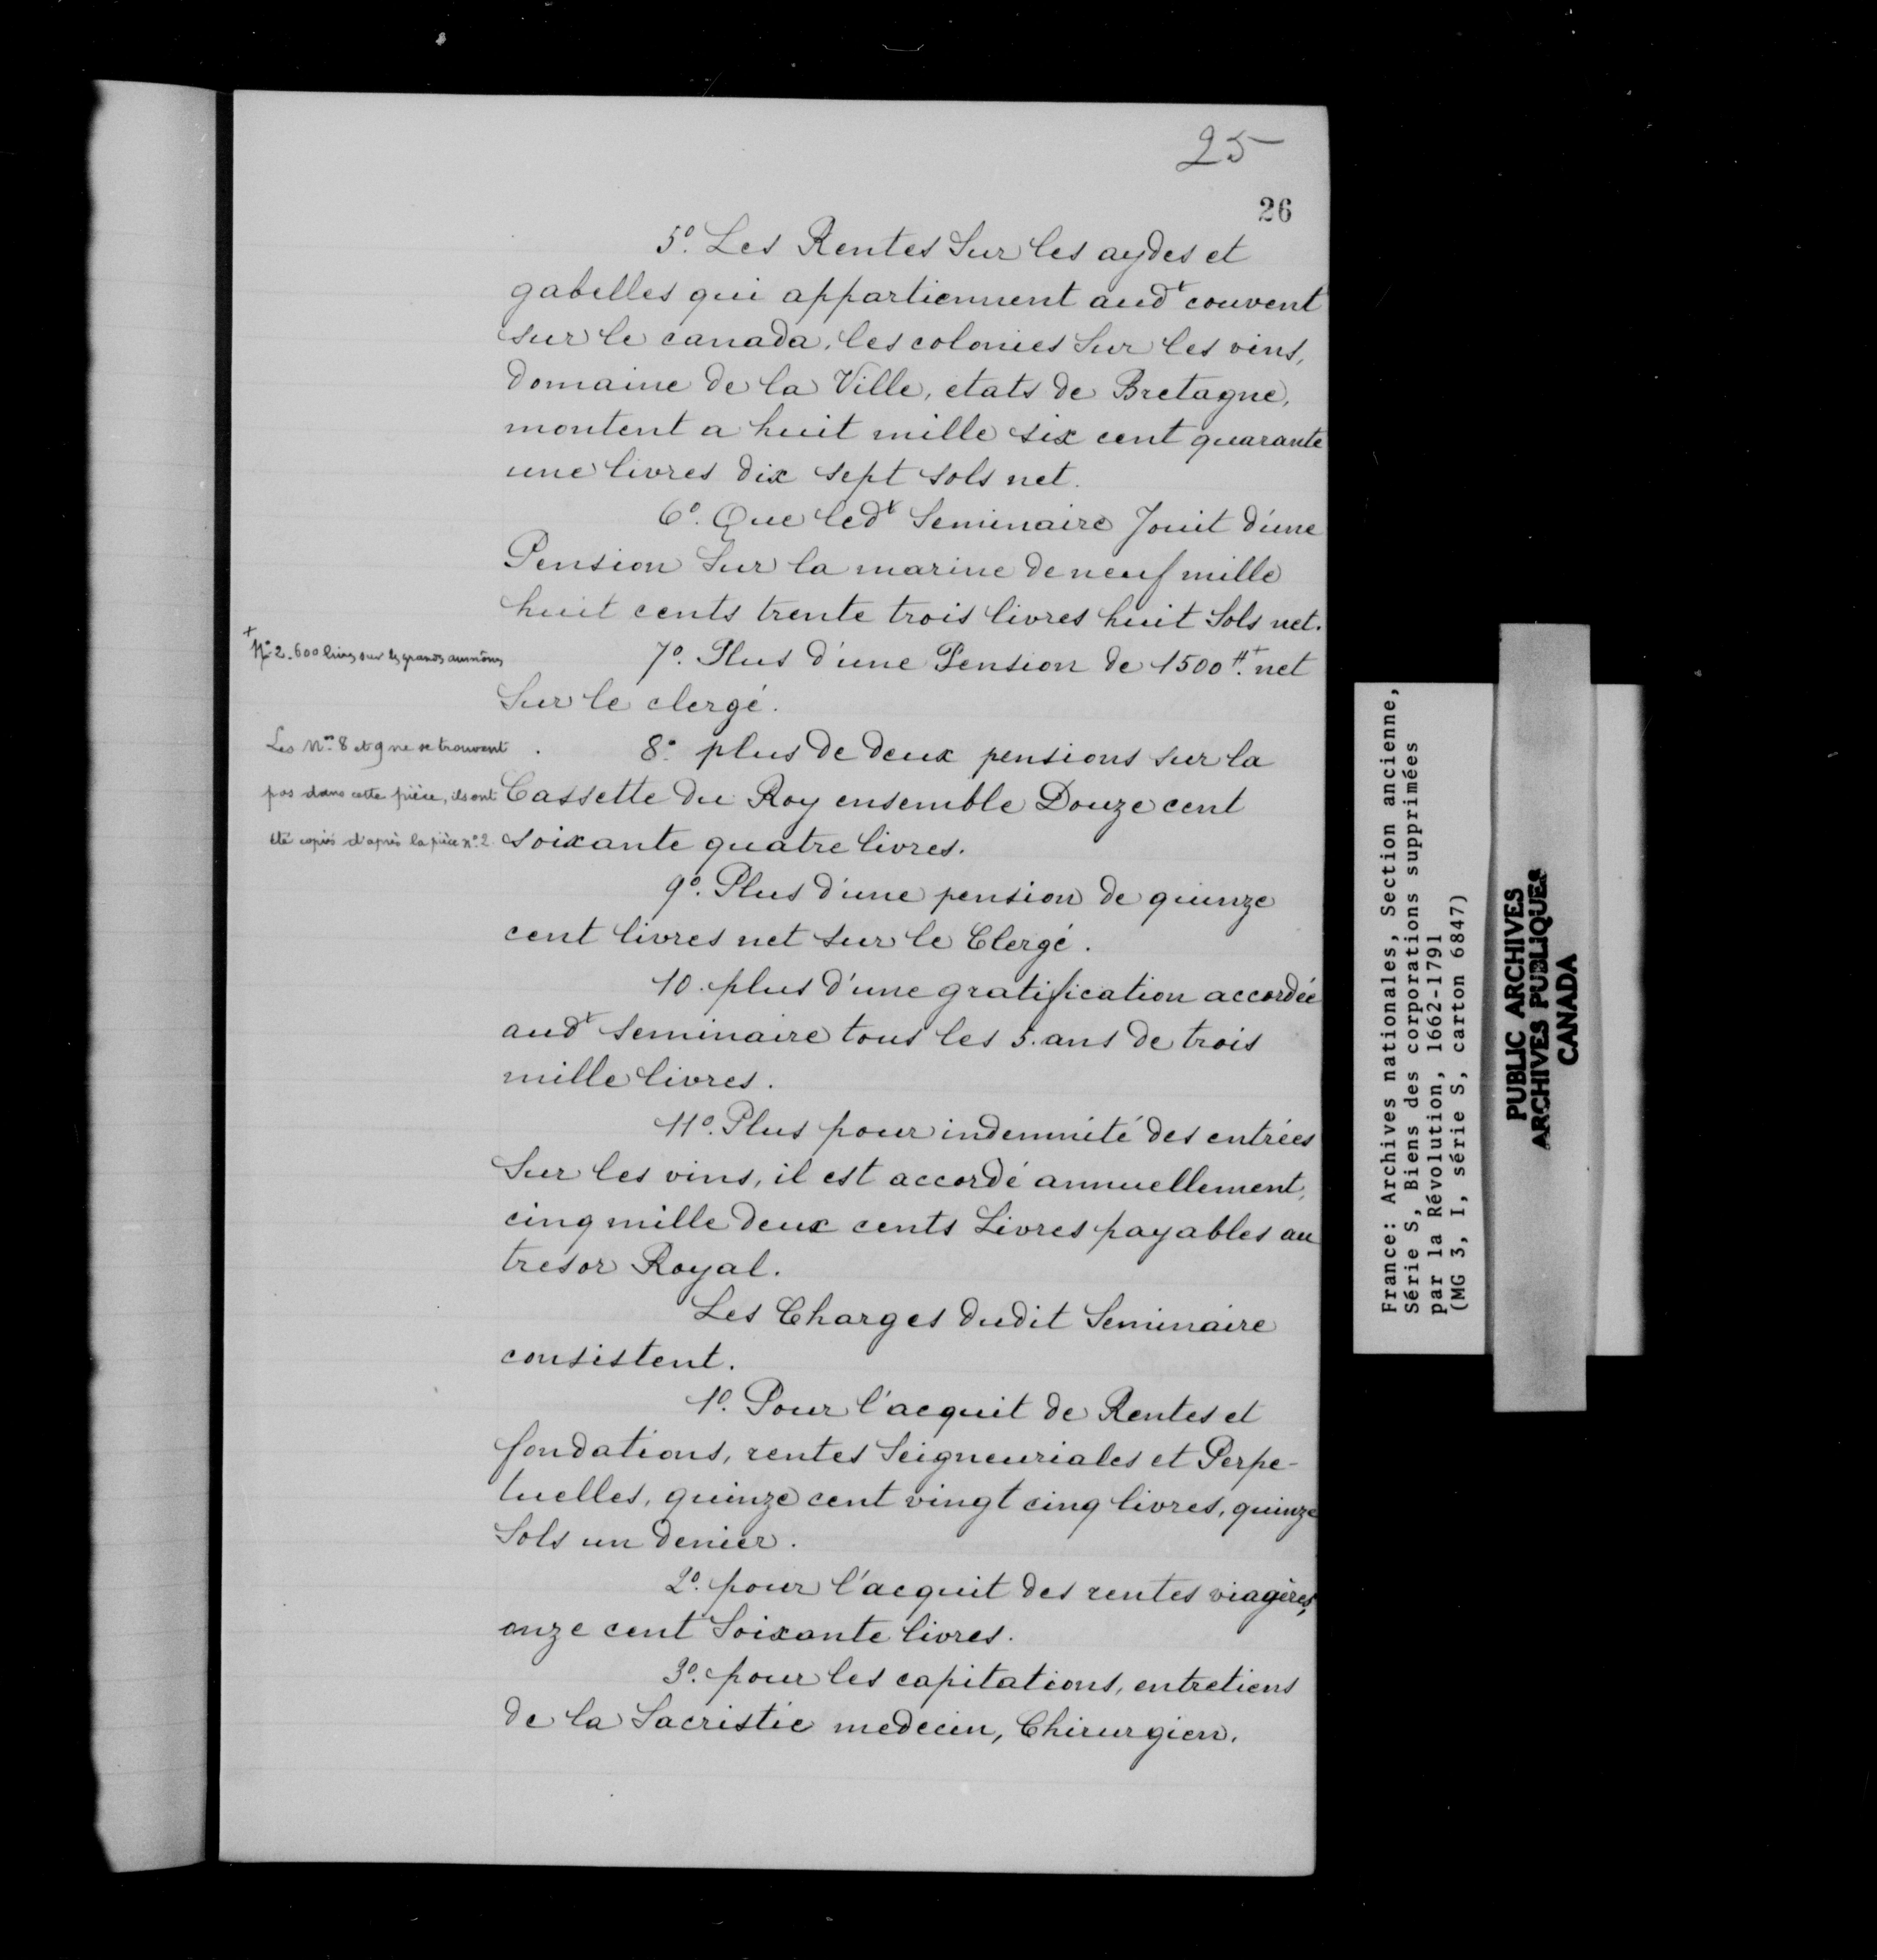 25
26
5º. Les Rentes sur les aydes et
gabelles qui appartiennent aud^t couvent
sur le canada, les colonies sur les vins,
domaine de la Ville, etats de Bretagne,
montent a huit mille six cent quarante
une livres dix sept sols net.
6º. Que led^t Seminaire Jouit d'une
Pension sur la marine de neuf mille
huit cents trente trois livres huit sols net.
+
Nº 2. 600 livres sur les grands aumônes
7º. Plus d'une Pension de 1500 ₶.+ net
sur le clergé.
Les Nos 8 et 9 ne se trouvent
pas dans cette pièce, ils ont
été copiés d'après la pièce nº 2.
8º. plus de deux pensions sur la
Cassette du Roy ensemble Douze cent
soixante quatre livres.
9º. Plus d'une pension de quinze
cent livres net sur le Clergé.
10. plus d'une gratification accordée
aud^t seminaire tous les 5. ans de trois
mille livres.
11º. Plus pour indemnité des entrées
sur les vins, il est accordé annuellement,
cinq mille deux cents Livres payables au
tresor Royal.
Les Charges dudit Seminaire
consistent.
1º. Pour l'acquit de Rentes et
fondations, rentes Seigneuriales et Perpe-
tuelles, quinze cent vingt cinq livres, quinze
sols un denier.
2º. pour l'acquit des rentes viagères,
onze cent soixante livres.
3º. pour les capitations, entretiens
de la Sacristie medecin, Chirurgien.
France: Archives nationales, Section ancienne,
Série S, Biens des corporations supprimées
par la Révolution, 1662-1791
(MG 3, I, série S, carton 6847)
PUBLIC ARCHIVES
ARCHIVES PUBLIQUES
CANADA